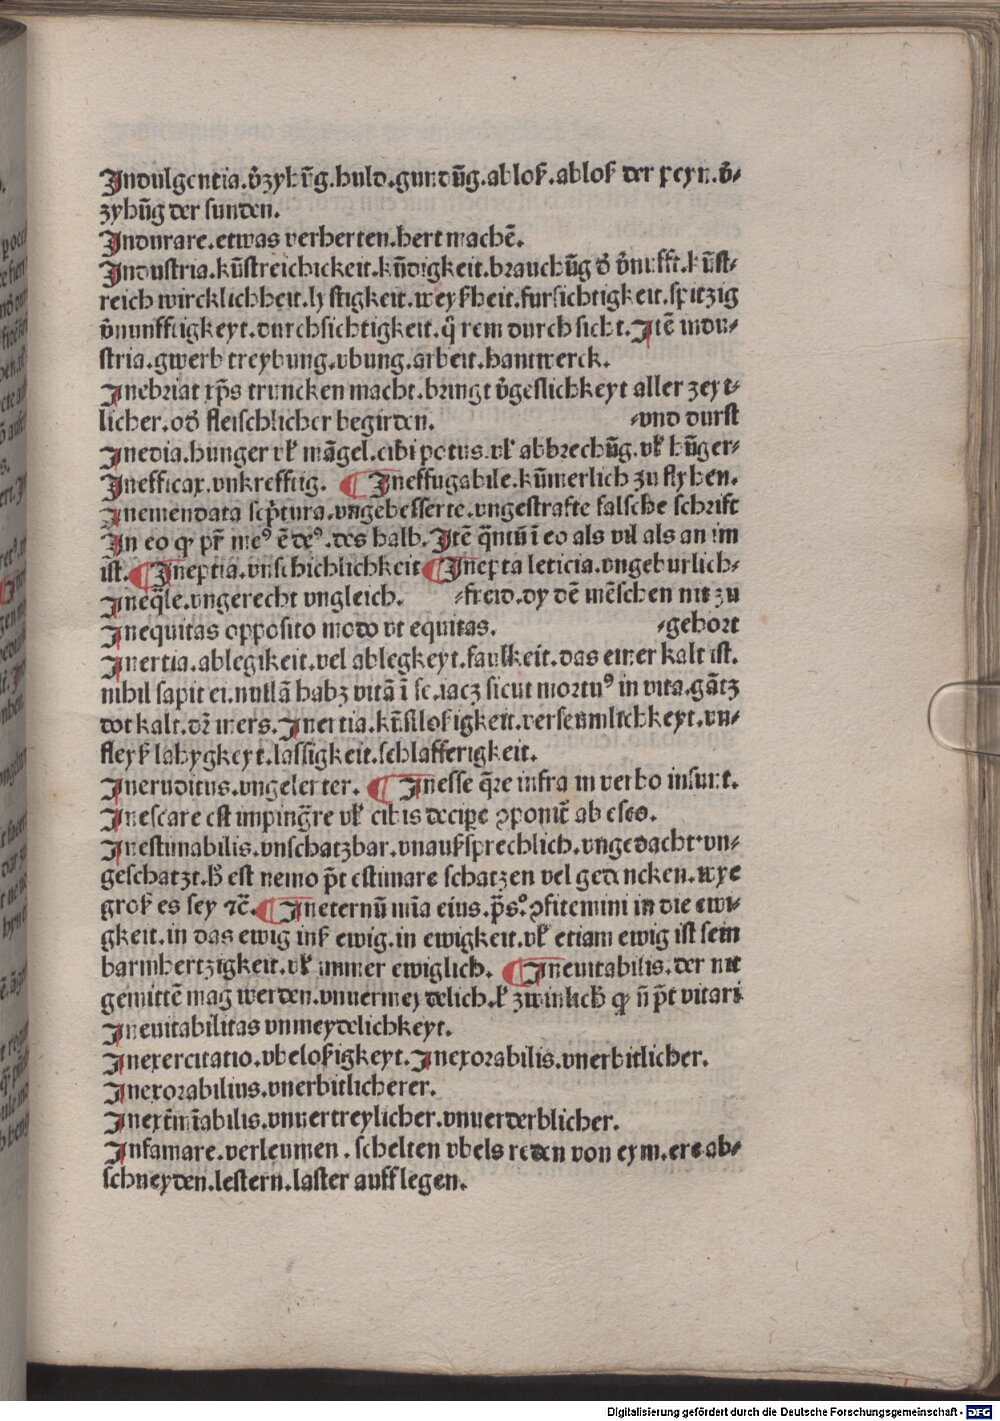 Indulgentia.v̉zyhūg.huld.gundūg.abloß.abloß der peyn.v̉-
zyhūg der sunden.
Indurare.etwas verherten.hert machē.
Industria.kūstreichickeit.kūdigkeit.brauchūg d̉ v̉nufft.kūst-
reich wircklichheit.lystigkeit.weyßheit.fursichtigkeit.spitzig
v̉nunfftigkeyt.durchsichtigkeit.q̄ rem durch sicht.Itē indu-
stria.gwerb treybung.vbung.arbeit.hantwerck.
Inebriat xp̄s truncken macht.bringt v̉geslichkeyt aller zeyt-
licher.od̉ fleischlicher begirden. -vnd durst
Inedia.hunger vl̓ māgel.cibi potus.vl̓ abbrechūg.vl̓ hūger-
Inefficax.vnkrefftig. ¶ Ineffugabile.kūmerlich zu flyhen.
Inemendata scp̄tura.vngebesserte.vngestrafte falsche schrift
In eo ꝙ pr̄ meꝰ ē deꝰ.des halb.Itē q̄ntū ī eo als vil als an im
ist.¶ Ineptia.vnschichlichkeit ¶ Inepta leticia.vngeburlich-
Ineq̄le.vngerecht vngleich. -freid.dy dē mēschen nit zu
Inequitas opposito modo vt equitas. -gehort
Inertia.ablegikeit.vel ablegkeyt.faulkeit.das einer kalt ist.
nihil sapit ei.nullā habz vitā ī se.iacz sicut mortuꝰ in vita.gātz
dot kalt.dr̄ iners.Inertia.kūstloßigkeit.verseumlichkeyt.vn-
fleyß lahygkeyt.lassigkeit.schlafferigkeit.
Ineruditus.vngelerter. ¶ Inesse q̄re infra in verbo insunt.
Inescare est imping̃re vl̓ cibis decipe ꝯponit̄ ab esco.
Inestimabilis.vnschatzbar.vnaußsprechlich.vngedacht.vn-
geschatzt.h̓ est nemo p̄t estimare schatzen vel gedencken.wye
groß es sey ⁊c̄.¶ Ineternū mīa eius.p̄s.ꝯfitemini in die ewi-
gkeit.in das ewig inß ewig.in ewigkeit.vl̓ etiam ewig ist sein
barmhertzigkeit.vl̓ immer ewiglich. ¶ Ineuitabilis.der nit
gemittē mag werden.vnuermeydelich.l̓ zwinlich ꝙ n̄ p̄t vitari
Ineuitabilitas vnmeydelichkeyt.
Inexercitatio.vbeloßigkeyt.Inexorabilis.vnerbitlicher.
Inexorabilius.vnerbitlicherer.
Inext̄mīabilis.vnuertreylicher.vnuerderblicher.
Infamare.verleumen.schelten vbels reden von eym.ere ab-
schneyden.lestern.laster auff legen.
Digitalisierung gefördert durch die Deutsche Forschungsgemeinschaft - DFG